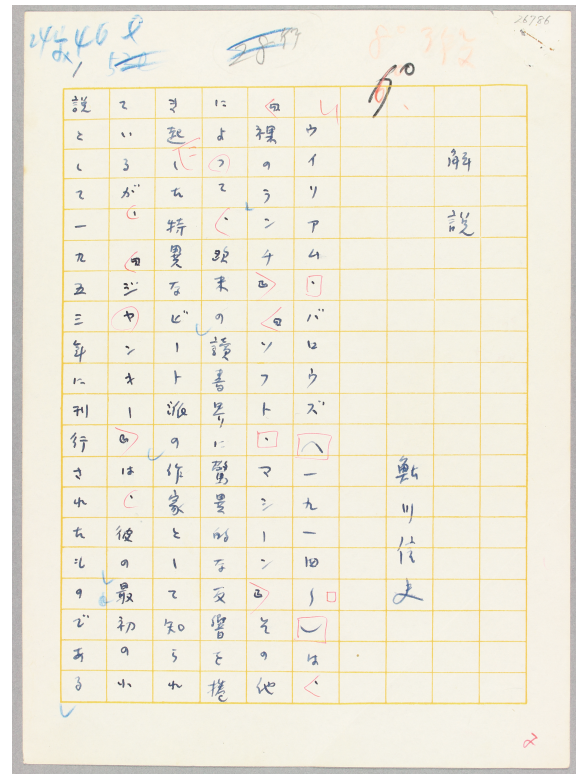 26786
解説
鮎川信夫
ウイリアム・バロウズ(一九一四〜)は、
『裸のランチ』『ソフト・マシーン』その他
によって、欧米の讀書界に驚異的な反響を捲
き起した特異なビート派の作家として知られ
ているが、『ジャンキー』は、彼の最初の小
説として一九五三年に刊行されたものである
2